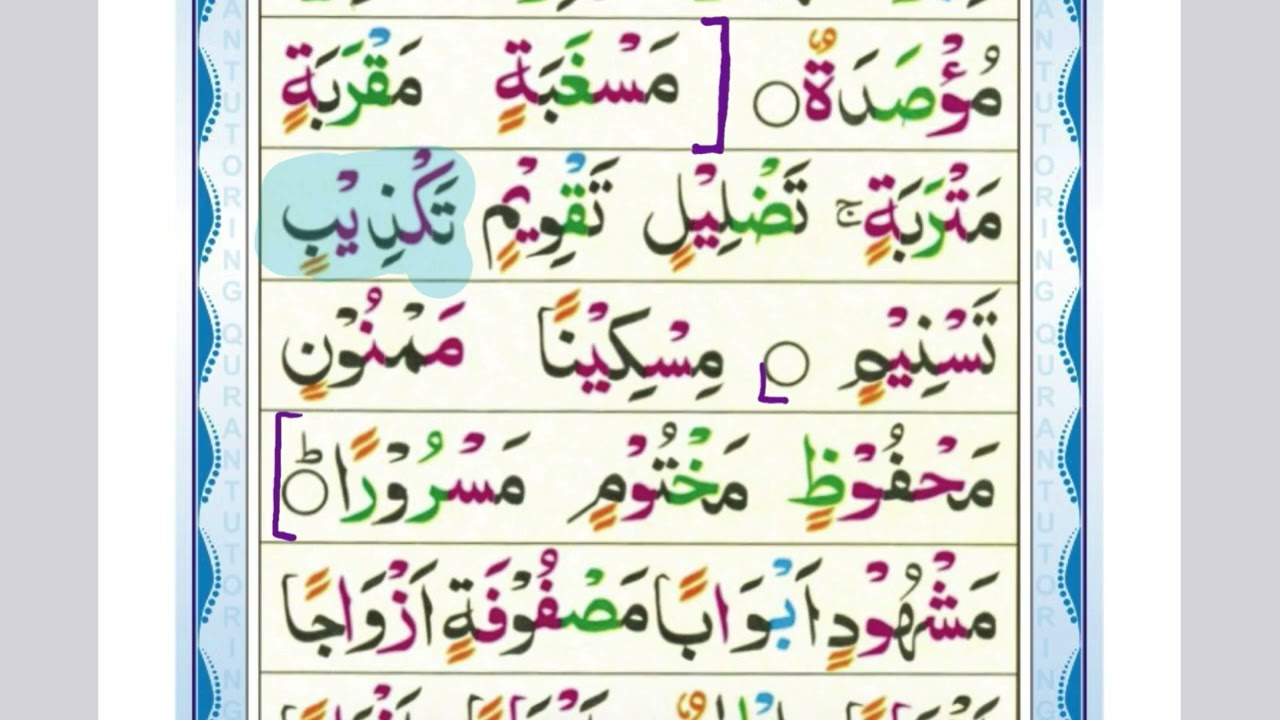 مُؤْصَدَةٌ ○ مَسْغَبَةٍ مَقْرَبَةٍ
مَتْرَبَةٍ ج تَضْلِيْلٍ تَقْوِيْمٍ تَكْذِيْبٍ
تَسْنِيْمٍ ○ مِسْكِيْنًا مَمْنُوْنٍ
مَحْفُوْظٍ مَخْتُوْمٍ مَسْرُوْرًا ○ ط
مَشْهُوْدٍ اَبْوَابًا مَصْفُوْفَةٍ اَزْوَاجًا
ANTUTORING QURANTUTORING
ANTUTORING QURANTUTORING